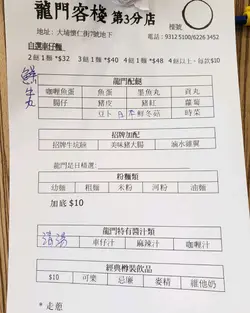 龍門客棧 第3分店
樓號
地址: 大埔懷仁街7號地下
電話: 9312 5100/6226 3452
自選車仔麵
2餸1麵 *$32 3餸1麵 *$40 4餸1麵 *$48 4餸以上，每款$10
龍門配餸
咖喱魚蛋 魚蛋 墨魚丸 貢丸
腸仔 豬皮 豬紅 蘿蔔
豆卜 冬菇 時菜
招牌加配
招牌牛坑腩 美味豬大腸 滷水雞翼
龍門是日精選:
粉麵類
幼麵 粗麵 米粉 河粉 油麵
加底 $10
龍門特有醬汁類
清湯 車仔汁 麻辣汁 咖喱汁
經典樽裝飲品
$10 可樂 忌廉 麥精 維他奶
* 走蔥